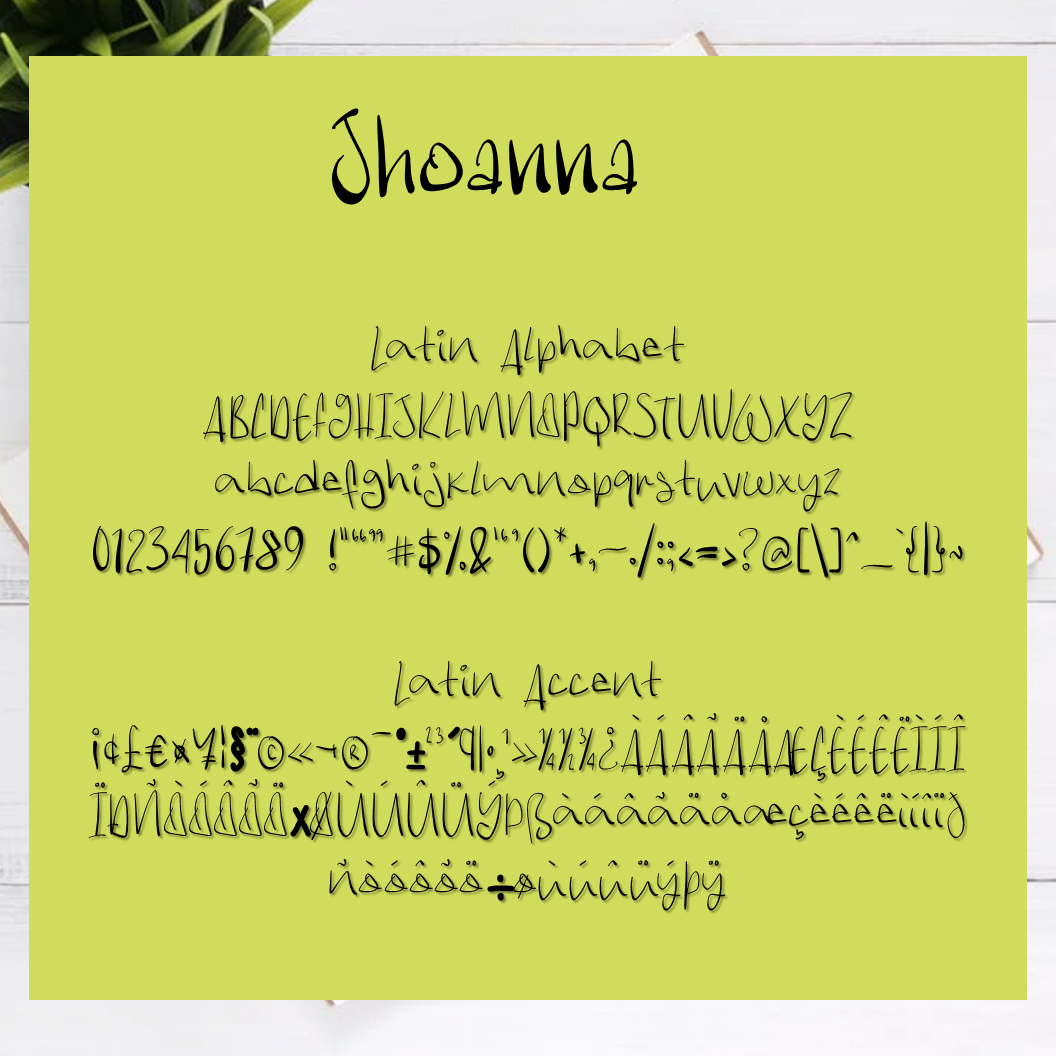 Jhoanna
Latin Alphabet
ABCDEFGHIJKLMNOPQRSTUVWXYZ
abcdefghijklmnopqrstuvwxyz
0123456789 !"“”#$%&'‘’()*+,-./:;<=>?@[\]^_`{|}~
Latin Accent
¡¢£€¤¥¦§¨©«¬®¯°±²³´¶·¸¹»¼½¾¿ÀÁÂÃÄÅÆÇÈÉÊËÌÍÎ
ÏÐÑÒÓÔÕÖ×ØÙÚÛÜÝÞßàáâãäåæçèéêëìíîïð
ñòóôõö÷øùúûüýþÿ